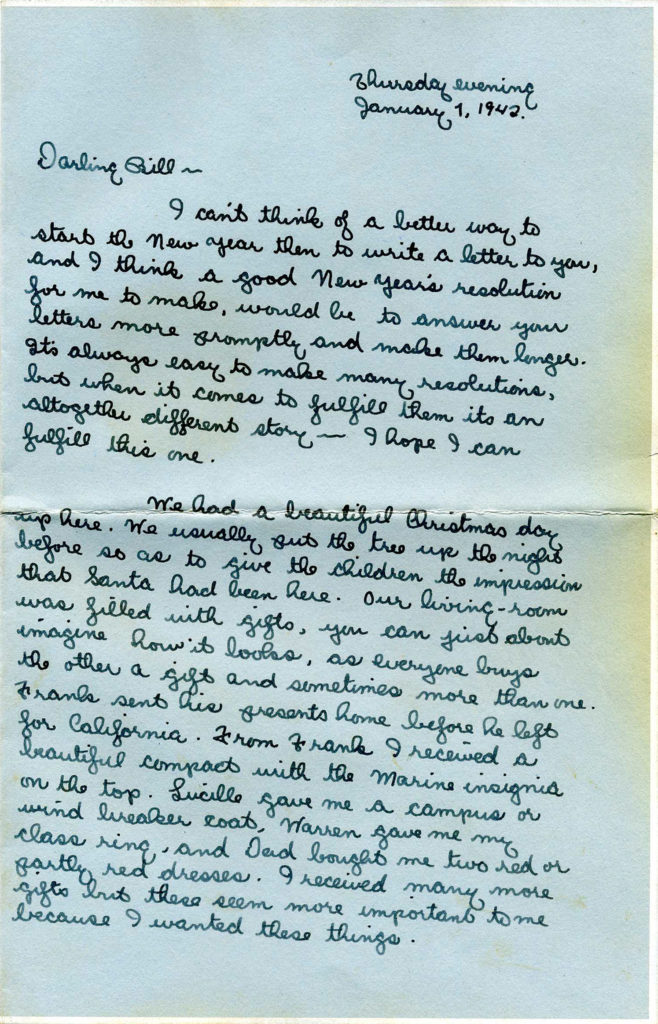 Thursday evening
January 1, 1942.
Darling Bill ~
I can't think of a better way to
start the New Year then to write a letter to you,
and I think a good New Year's resolution
for me to make, would be to answer your
letters more promptly and make them longer.
It's always easy to make many resolutions,
but when it comes to fulfill them its an
altogether different story — I hope I can
fulfill this one.
We had a beautiful Christmas day
up here. We usually put the tree up the night
before so as to give the children the impression
that Santa had been here. Our living-room
was filled with gifts, you can just about
imagine how it looks, as everyone buys
the other a gift and sometimes more than one.
Frank sent his presents home before he left
for California. From Frank I received a
beautiful compact with the Marine insignia
on the top. Lucille gave me a campus or
wind breaker coat, Warren gave me my
class ring, and Dad bought me two red or
partly red dresses. I received many more
gifts but these seem more important to me
because I wanted these things.